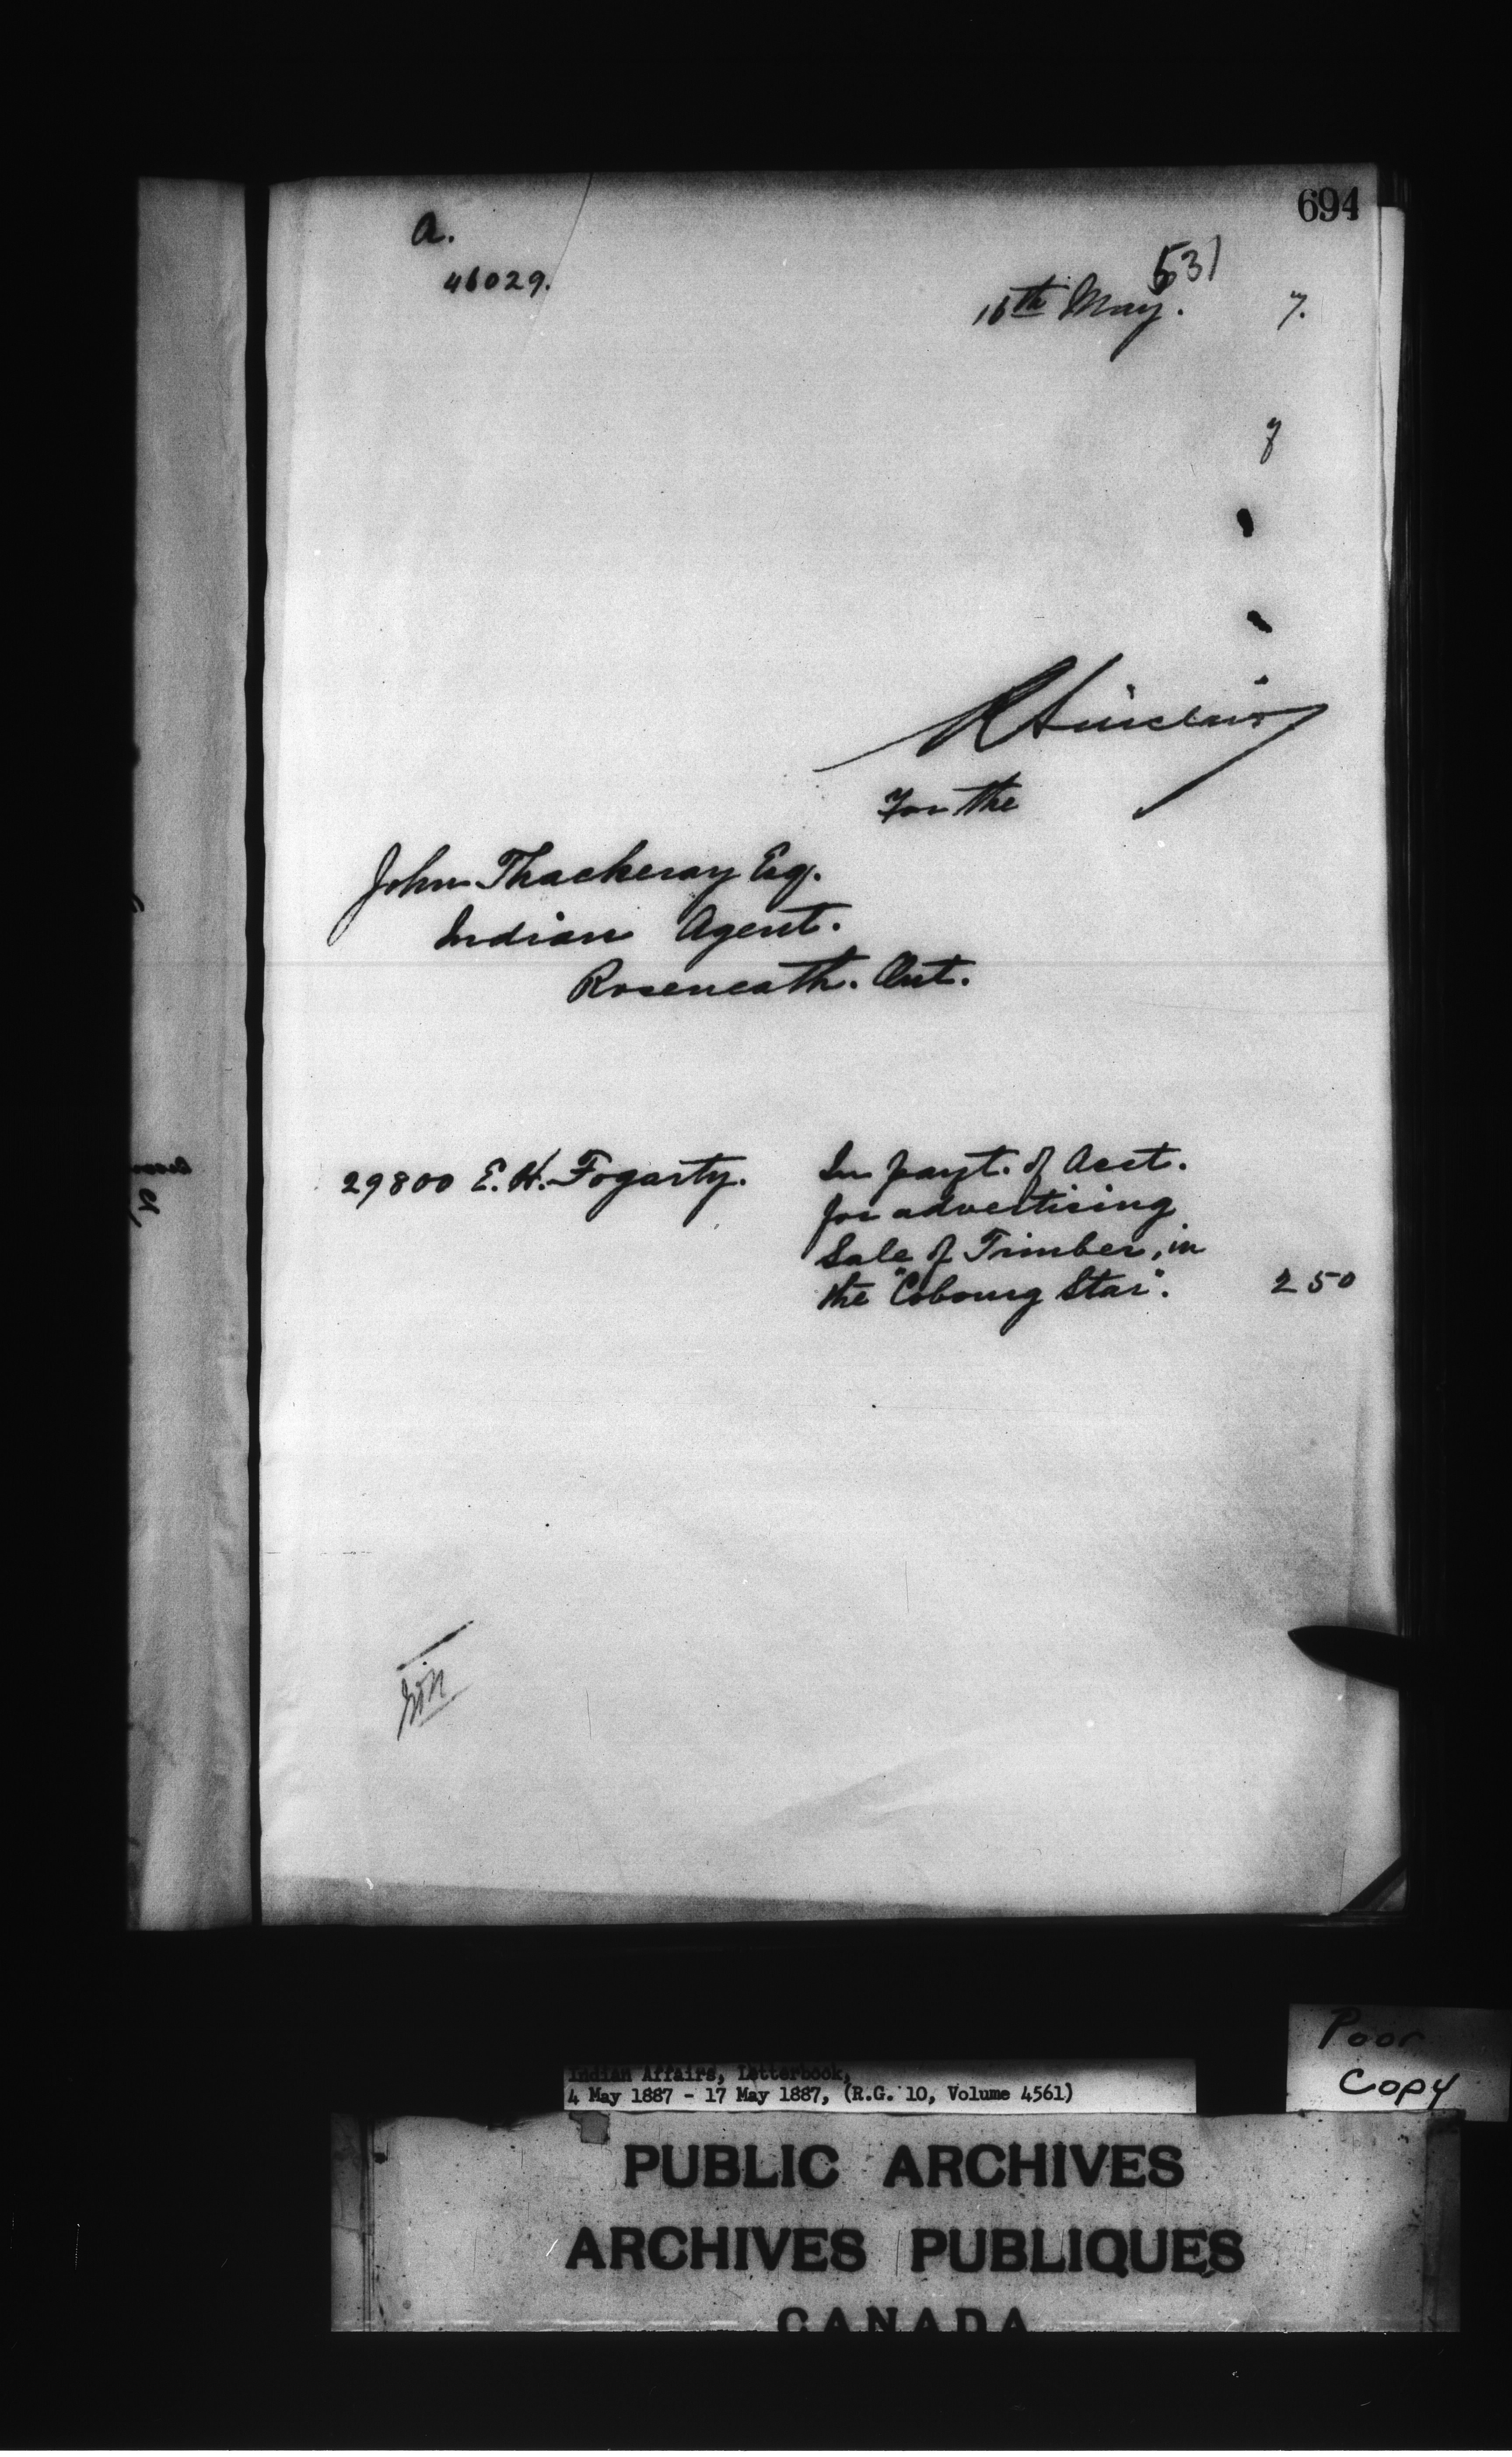 694
a.
46029.
531
16th May. 7.
R Sinclair
For the
John Thackeray Esq.
Indian Agent.
Roseneath. Ont.
29800 E. H. Fogarty. In payt. of Acct.
for advertising
Sale of Timber, in
the "Cobourg Star". 2 50
Poor
Copy
Indian Affairs, Letterbook,
4 May 1887 - 17 May 1887, (R.G. 10, Volume 4561)
PUBLIC ARCHIVES
ARCHIVES PUBLIQUES
CANADA